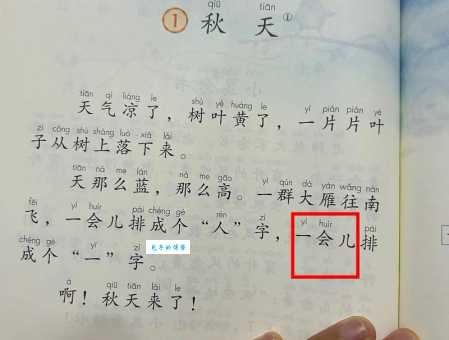 qiū tiān
1 秋天①
tiān qì liáng le shù yè huáng le yí piàn piàn yè
天气凉了，树叶黄了，一片片叶
zi cóng shù shàng luò xià lái
子从树上落下来。
tiān nà me lán nà me gāo yì qún dà yàn wǎng nán
天那么蓝，那么高。一群大雁往南
fēi yí huìr pái chéng gè rén zì yí huìr pái
飞，一会儿排成个“人”字，一会儿排
chéng gè yī zì
成个“一”字。
qiū tiān lái le
啊！秋天来了！